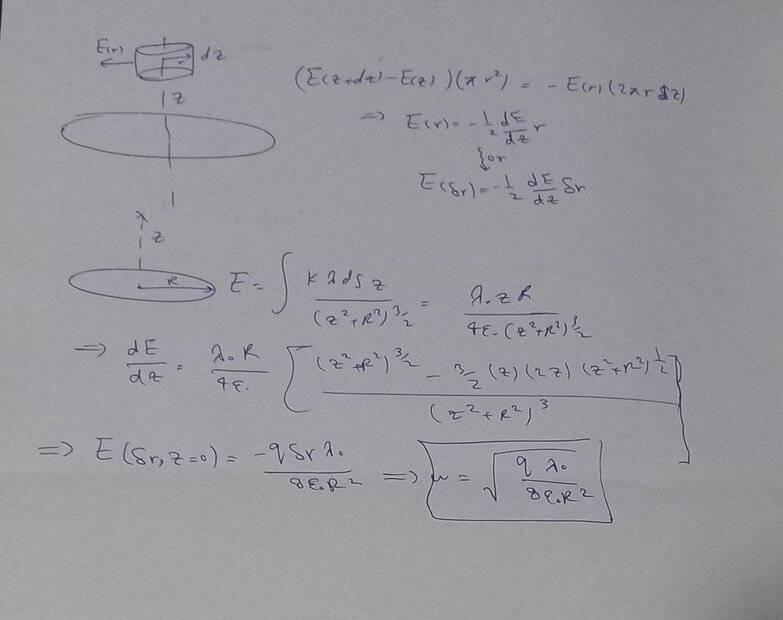 E(r) dz
r
(E(z+dz)-E(z))(πr²) = -E(r)(2πr dz)
z
⇒ E(r) = -1/2 dE/dz r
or
E(δr) = -1/2 dE/dz δr
z
R
E = ∫ Kλds z / (z²+R²)^3/2 = λ₀zR / 4ε₀(z²+R²)^3/2
⇒ dE/dz = λ₀R/4ε₀ [ ((z²+R²)^3/2 - 3/2 (z)(2z)(z²+R²)^1/2) / (z²+R²)^3 ]
⇒ E(δr, z=0) = -qδrλ₀ / 8ε₀R² ⇒ w = √(qλ₀ / 8ε₀R²)